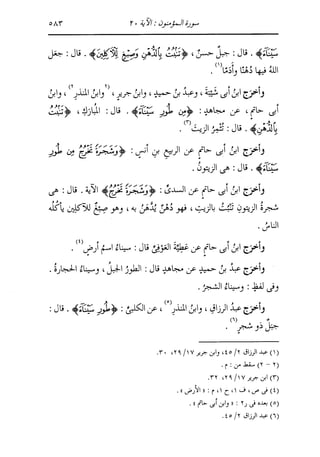 سورة المؤمنون : الآية ٢٠
٥٨٣
سَيْنَآءَ﴾ . قال : جبلٌ حسنٌ ، ﴿تَنۢبُتُ بِٱلدُّهْنِ وَصِبْغٍ لِّلْآكِلِينَ﴾ . قال : جعَل
اللهُ فيها دُهْنًا وأُدْمًا(١) .
وأخرَج ابنُ أبى شَيْبَةَ ، وعبدُ بنُ حميدٍ ، وابنُ جريرٍ ، (٢)وابنُ المنذرِ(٢) ، وابنُ
أبى حاتمٍ ، عن مجاهدٍ : ﴿مِن طُورِ سَيْنَآءَ﴾ . قال : المُبارَكِ ، ﴿تَنۢبُتُ
بِٱلدُّهْنِ﴾ . قال : تُثْمِرُ الزيتَ(٣) .
وأخرَج ابنُ أبى حاتمٍ عن الربيعِ بنِ أنسٍ : ﴿وَشَجَرَةً تَخْرُجُ مِن طُورِ
سَيْنَآءَ﴾ . قال : هى الزيتونُ .
وأخرَج ابنُ أبى حاتمٍ عن السدىِّ : ﴿وَشَجَرَةً تَخْرُجُ﴾ الآية . قال : هى
شجرةُ الزيتونِ تَنْبُتُ بالزيتِ ، فهو دُهْنٌ يُدَّهَنُ به ، وهو صِبْغٌ للآكلين يأكُلُه
الناسُ .
وأخرَج ابنُ أبى حاتمٍ عن عَطِيَّةَ العَوْفىِّ قال : سيناءُ اسمُ أرضٍ(٤) .
وأخرَج عبدُ بنُ حميدٍ عن مجاهدٍ قال : الطورُ الجبلُ ، وسيناءُ الحجارةُ .
وفى لفظٍ : وسيناءُ الشجرُ .
وأخرَج عبدُ الرزاقِ ، وابنُ المنذرِ(٥) ، عن الكلبىِّ : ﴿مِن طُورِ سَيْنَآءَ﴾ . قال :
جبَلٌ ذو شجرٍ(٦) .
(١) عبد الرزاق ٢/ ٤٥، وابن جرير ١٧/ ٢٩، ٣٠.
(٢ - ٢) سقط من : م .
(٣) ابن جرير ١٧/ ٢٩، ٣٢.
(٤) فى ص، ف ١، ح ١، م : « الأرض » .
(٥) بعده فى ر ٢ : « وابن أبى حاتم » .
(٦) عبد الرزاق ٢/ ٤٥.